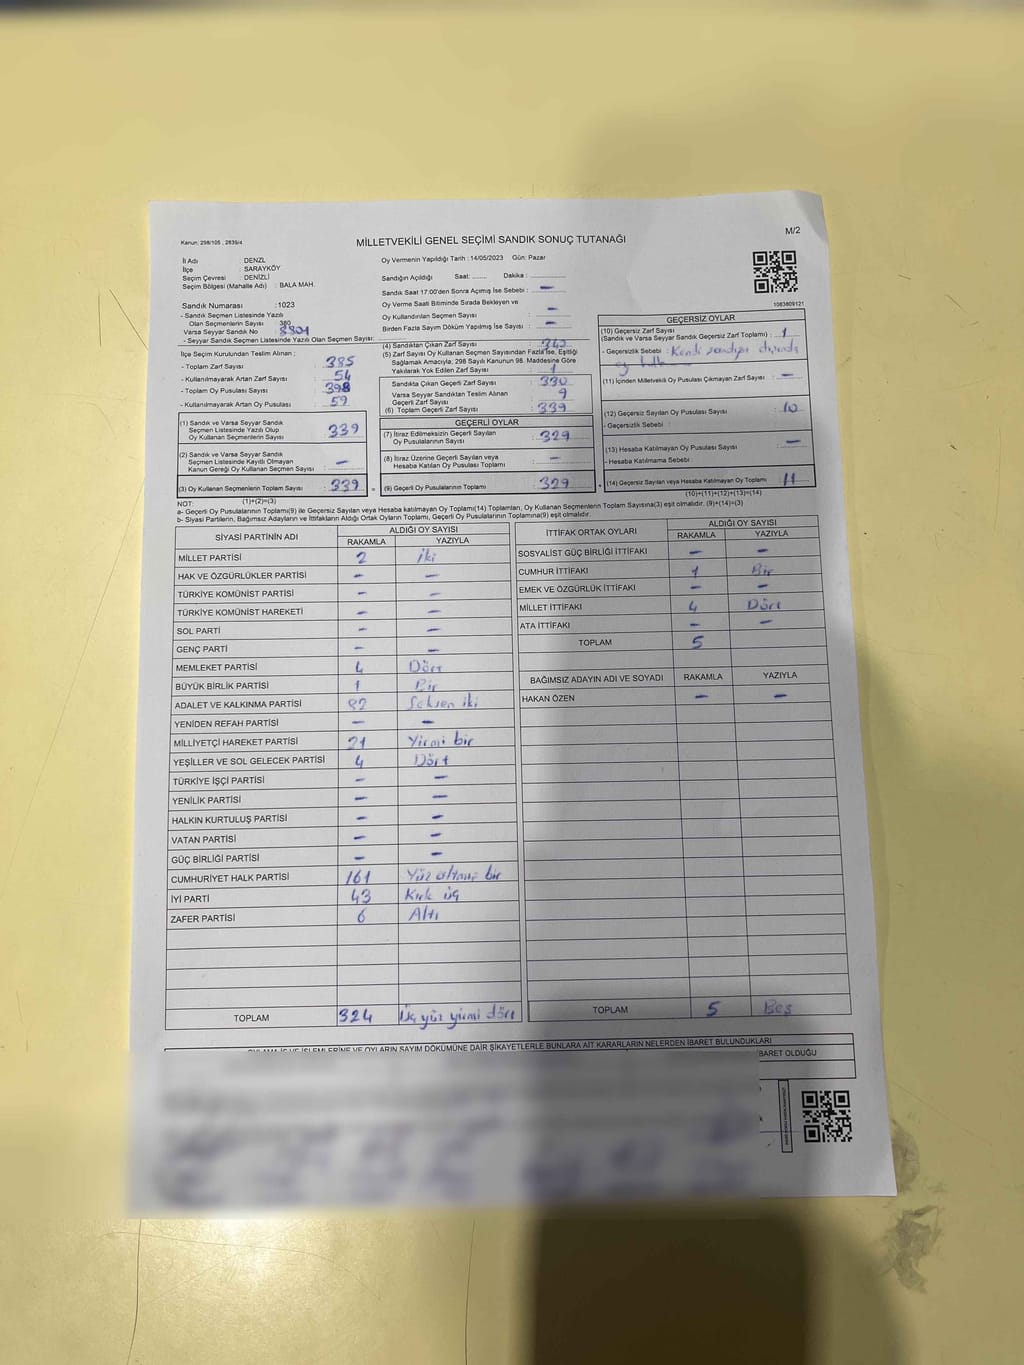 Kanun: 298/105 , 2839/4
MİLLETVEKİLİ GENEL SEÇİMİ SANDIK SONUÇ TUTANAĞI
M/2
İl Adı : DENZL
İlçe : SARAYKÖY
Seçim Çevresi : DENİZLİ
Seçim Bölgesi (Mahalle Adı) : BALA MAH.
Sandık Numarası :1023
- Sandık Seçmen Listesinde Yazılı
Olan Seçmenlerin Sayısı : 380
Varsa Seyyar Sandık No
- Seyyar Sandık Seçmen Listesinde Yazılı Olan Seçmen Sayısı:
Oy Vermenin Yapıldığı Tarih :14/05/2023 Gün: Pazar
Sandığın Açıldığı Saat: ........ Dakika : ................
Sandık Saat 17:00'den Sonra Açımış İse Sebebi : —
Oy Verme Saati Bitiminde Sırada Bekleyen ve
Oy Kullandırılan Seçmen Sayısı : —
Birden Fazla Sayım Döküm Yapılmış İse Sayısı : —
1083809121
İlçe Seçim Kurulundan Teslim Alınan ;
- Toplam Zarf Sayısı : 385
- Kullanılmayarak Artan Zarf Sayısı : 54
- Toplam Oy Pusulası Sayısı : 398
- Kullanılmayarak Artan Oy Pusulası : 59
(1) Sandık ve Varsa Seyyar Sandık
Seçmen Listesinde Yazılı Olup
Oy Kullanan Seçmenlerin Sayısı : 339
(2) Sandık ve Varsa Seyyar Sandık
Seçmen Listesinde Kayıtlı Olmayan
Kanun Gereği Oy Kullanan Seçmen Sayısı : —
(3) Oy Kullanan Seçmenlerin Toplam Sayısı : 339 =
(1)+(2)=(3)
(4) Sandıktan Çıkan Zarf Sayısı : 340
(5) Zarf Sayısı Oy Kullanan Seçmen Sayısından Fazla İse, Eşitliği
Sağlamak Amacıyla, 298 Sayılı Kanunun 98. Maddesine Göre
Yakılarak Yok Edilen Zarf Sayısı : 1
Sandıkta Çıkan Geçerli Zarf Sayısı : 330
Varsa Seyyar Sandıktan Teslim Alınan
Geçerli Zarf Sayısı : 9
(6) Toplam Geçerli Zarf Sayısı : 339
GEÇERLİ OYLAR
(7) İtiraz Edilmeksizin Geçerli Sayılan
Oy Pusulalarının Sayısı : 329
(8) İtiraz Üzerine Geçerli Sayılan veya
Hesaba Katılan Oy Pusulası Toplamı : —
(9) Geçerli Oy Pusulalarının Toplamı : 329 +
GEÇERSİZ OYLAR
(10) Geçersiz Zarf Sayısı
(Sandık ve Varsa Seyyar Sandık Geçersiz Zarf Toplamı) : 1
- Geçersizlik Sebebi : Kendi sandığı dışında
oy
(11) İçinden Milletvekili Oy Pusulası Çıkmayan Zarf Sayısı : —
(12) Geçersiz Sayılan Oy Pusulası Sayısı : 10
- Geçersizlik Sebebi :
(13) Hesaba Katılmayan Oy Pusulası Sayısı : —
- Hesaba Katılmama Sebebi :
(14) Geçersiz Sayılan veya Hesaba Katılmayan Oy Toplamı : 11
(10)+(11)+(12)+(13)=(14)
NOT:
a- Geçerli Oy Pusulalarının Toplamı(9) ile Geçersiz Sayılan veya Hesaba katılmayan Oy Toplamı(14) Toplamları, Oy Kullanan Seçmenlerin Toplam Sayısına(3) eşit olmalıdır. (9)+(14)=(3)
b- Siyasi Partilerin, Bağımsız Adayların ve İttifakların Aldığı Ortak Oyların Toplamı, Geçerli Oy Pusulalarının Toplamına(9) eşit olmalıdır.
SİYASİ PARTİNİN ADI ALDIĞI OY SAYISI
RAKAMLA YAZIYLA
MİLLET PARTİSİ 2 iki
HAK VE ÖZGÜRLÜKLER PARTİSİ — —
TÜRKİYE KOMÜNİST PARTİSİ — —
TÜRKİYE KOMÜNİST HAREKETİ — —
SOL PARTİ — —
GENÇ PARTİ — —
MEMLEKET PARTİSİ 4 Dört
BÜYÜK BİRLİK PARTİSİ 1 Bir
ADALET VE KALKINMA PARTİSİ 82 Seksen iki
YENİDEN REFAH PARTİSİ — —
MİLLİYETÇİ HAREKET PARTİSİ 21 Yirmi bir
YEŞİLLER VE SOL GELECEK PARTİSİ 4 Dört
TÜRKİYE İŞÇİ PARTİSİ — —
YENİLİK PARTİSİ — —
HALKIN KURTULUŞ PARTİSİ — —
VATAN PARTİSİ — —
GÜÇ BİRLİĞİ PARTİSİ — —
CUMHURİYET HALK PARTİSİ 161 Yüz altmış bir
İYİ PARTİ 43 Kırk üç
ZAFER PARTİSİ 6 Altı
TOPLAM 324 Üç yüz yirmi dört
İTTİFAK ORTAK OYLARI ALDIĞI OY SAYISI
RAKAMLA YAZIYLA
SOSYALİST GÜÇ BİRLİĞİ İTTİFAKI — —
CUMHUR İTTİFAKI 1 Bir
EMEK VE ÖZGÜRLÜK İTTİFAKI — —
MİLLET İTTİFAKI 4 Dört
ATA İTTİFAKI — —
TOPLAM 5
BAĞIMSIZ ADAYIN ADI VE SOYADI RAKAMLA YAZIYLA
HAKAN ÖZEN — —
TOPLAM 5 Beş
OYLAMA İŞ VE İŞLEMLERİNE VE OYLARIN SAYIM DÖKÜMÜNE DAİR ŞİKAYETLERLE BUNLARA AİT KARARLARIN NELERDEN İBARET BULUNDUKLARI
BARET OLDUĞU